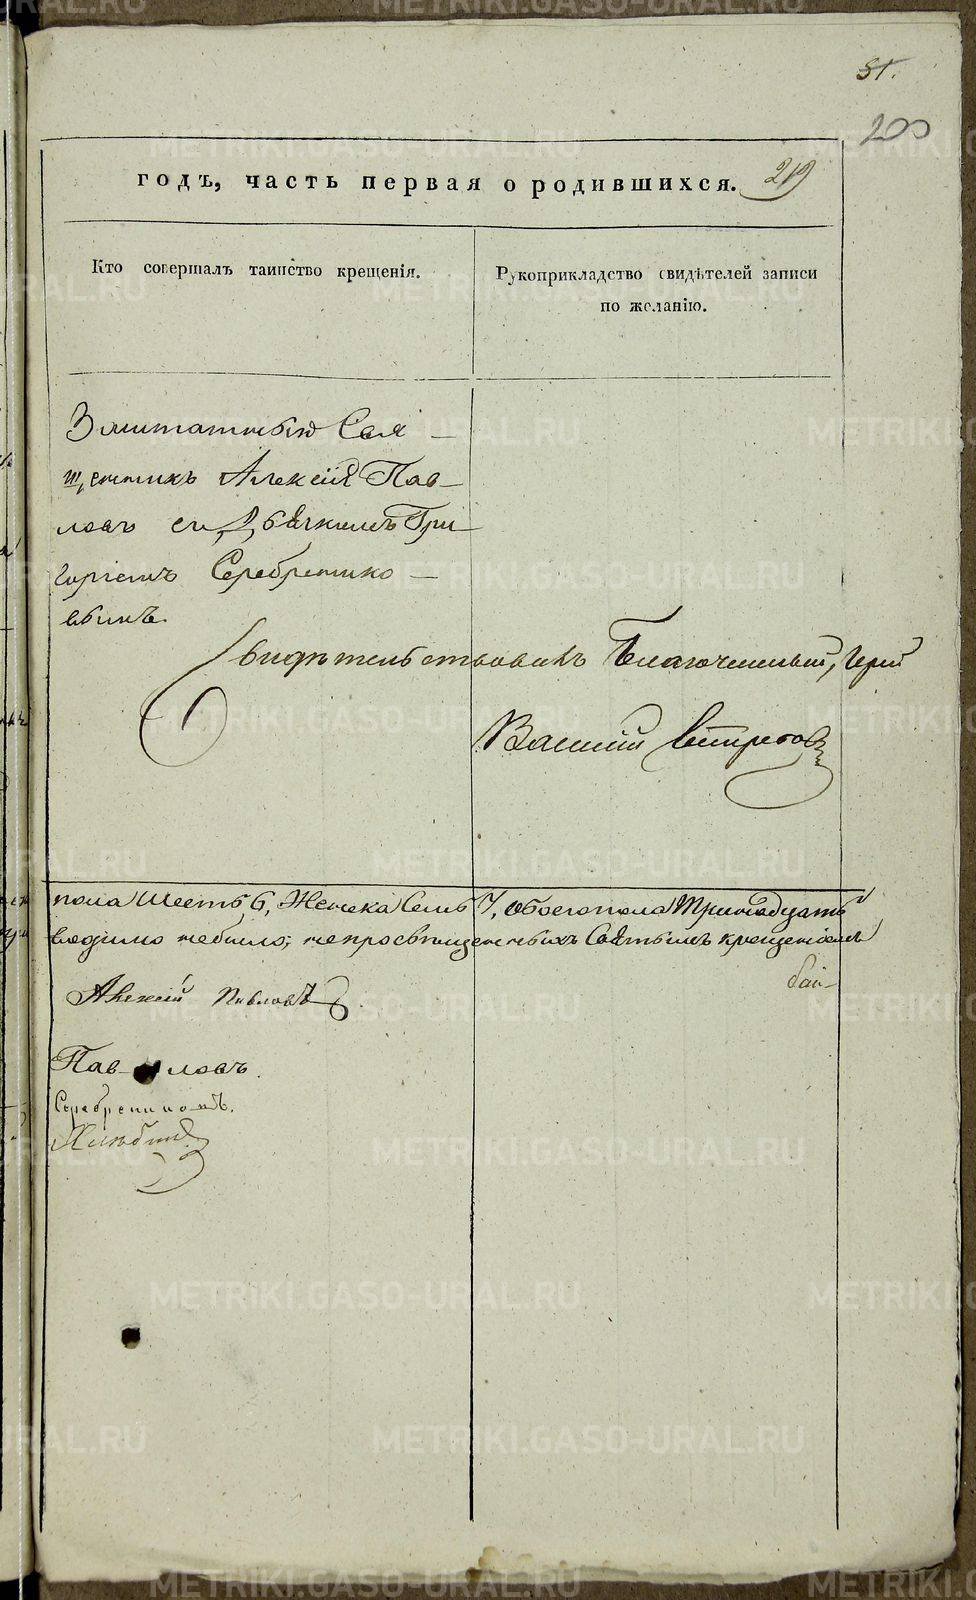 51.
200
годъ, часть первая о родившихся. 219
Кто совершалъ таинство крещенія.
Рукоприкладство свидѣтелей записи
по желанію.
Заштатный Свя-
щенникъ Алексій Пав-
ловъ съ Дьячкомъ Гри
горіемъ Серебренико-
вымъ.
Свидѣтельствовалъ Благочинный, Іерей
Василій
пола Шесть 6, Женска Семь 7, обоего пола Тринадцать
было; непросвященныхъ Святымъ крещеніемъ
Алексій Павловъ
Пав-ловъ.
METRIKI.GASO-URAL.RU